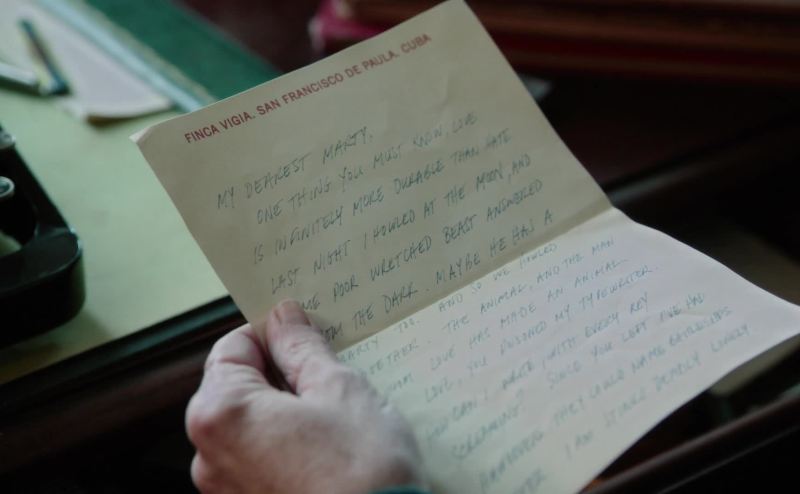 FINCA VIGIA. SAN FRANCISCO DE PAULA. CUBA
MY DEAREST MARTY,
ONE THING YOU MUST KNOW, LOVE
IS INFINITELY MORE DURABLE THAN HATE
LAST NIGHT I HOWLED AT THE MOON, AND
ME POOR WRETCHED BEAST ANSWERED
OM THE DARK. MAYBE HE HAS A
MARTY TOO. AND SO WE HOWLED
ETHER. THE ANIMAL, AND THE MAN
OM LOVE HAS MADE AN ANIMAL.
LOVE, YOU POISONED MY TYPEWRITER.
HOW CAN I WRITE, WITH EVERY KEY
SCREAMING? SINCE YOU LEFT I'VE HAD
THEY COULD NAME BATTLESHIPS
I AM STINKO DEADLY LONELY